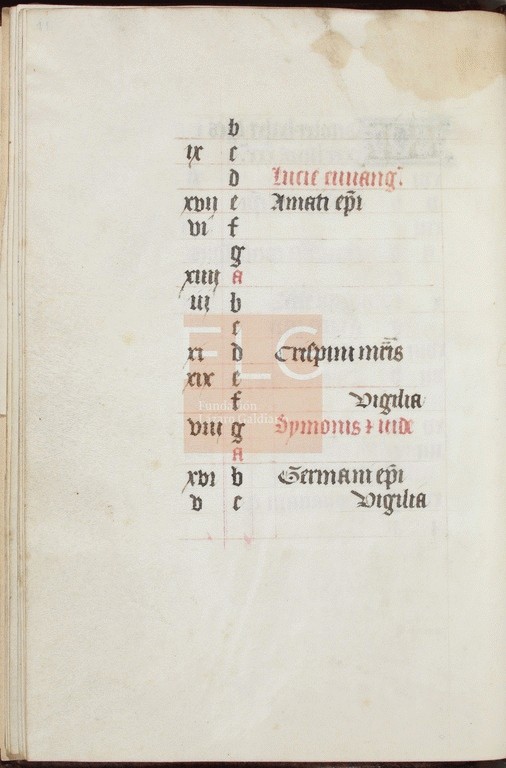 b
ix c
d Lucie euuang.
xvii e Amati ep̄i
vi f
g
xiiii a
iii b
c
xi d Crispini mr̄is
xix e
f vigilia
viii g Symonis ⁊ iude
a
xvi b Germani ep̄i
v c vigilia
FLC
Fundación
Lázaro Galdiano